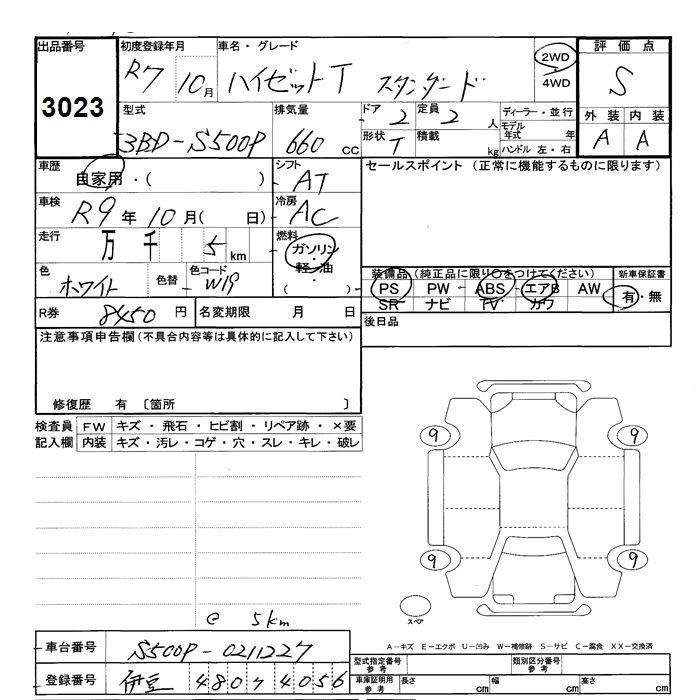 出品番号 初度登録年月 車名・グレード 2WD 評価点
3023 R7 10月 ハイゼットT スタンダード 4WD S
型式 排気量 ドア 2 定員 2人 ディーラー・並行 外装 内装
3BD-S500P 660cc 形状 T 積載 kg モデル年式 年 A A
ハンドル 左・右
車歴 自家用・( ) シフト AT セールスポイント (正常に機能するものに限ります)
車検 R9年10月( 日) 冷房 AC
走行 万 千 5 km 燃料 ガソリン・軽油 ( )
色 ホワイト 色替 色コード W19
装備品 (純正品に限り○をつけてください) 新車保証書
PS PW ABS エアB AW 有・無
SR ナビ TV カワ
R券 8450円 名変期限 月 日 後日品
注意事項申告欄 (不具合内容等は具体的に記入して下さい)
修復歴 有 〔箇所 〕
検査員 FW キズ・飛石・ヒビ割・リペア跡・×要
記入欄 内装 キズ・汚レ・コゲ・穴・スレ・キレ・破レ
9 9
9 9
スペア
@ 5km
A-キズ E-エクボ U-凹み W-補修跡 S-サビ C-腐食 XX-交換済
車台番号 S500P-0211227
型式指定番号 参考 類別区分番号 参考
登録番号 伊豆 480 ｿ 4056
車庫証明用 参考 長さ cm 幅 cm 高さ cm